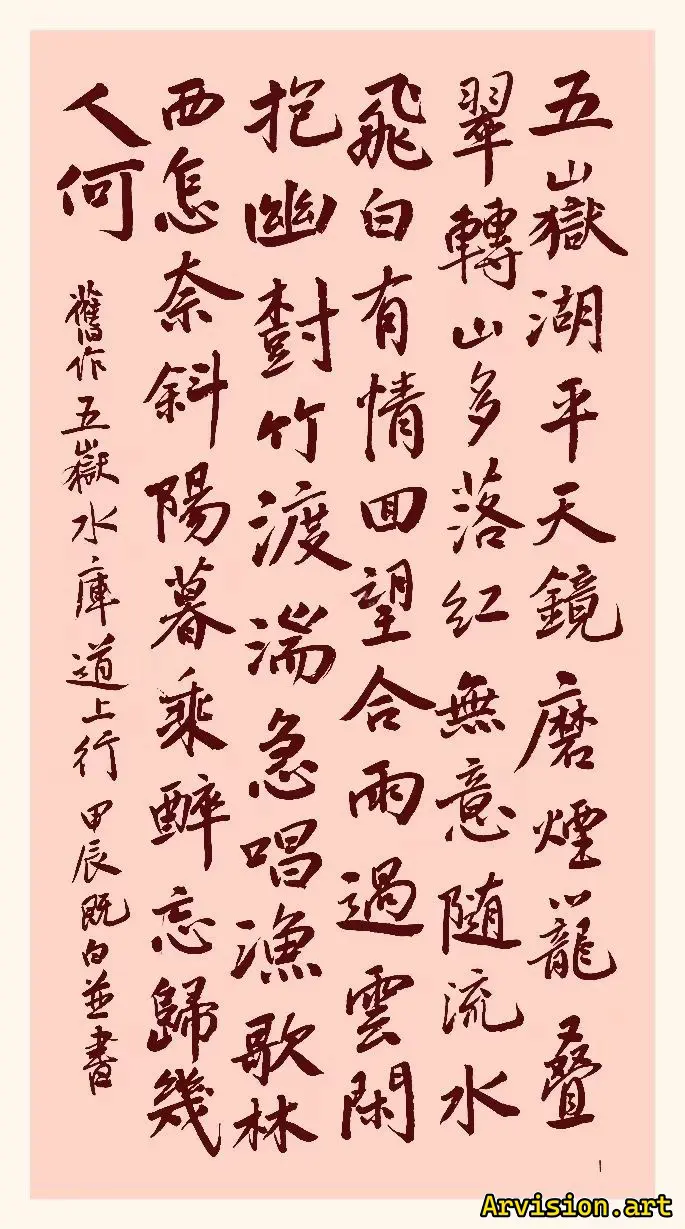 五嶽湖平天鏡磨煙籠疊
翠轉山多落紅無意隨流水
飛白有情回望合雨過雲閑
抱幽對竹渡湍急唱漁歌林
西怎奈斜陽暮乘醉忘歸幾
人何
舊作五嶽水庫道上行甲辰既白並書
1
Arvision.art